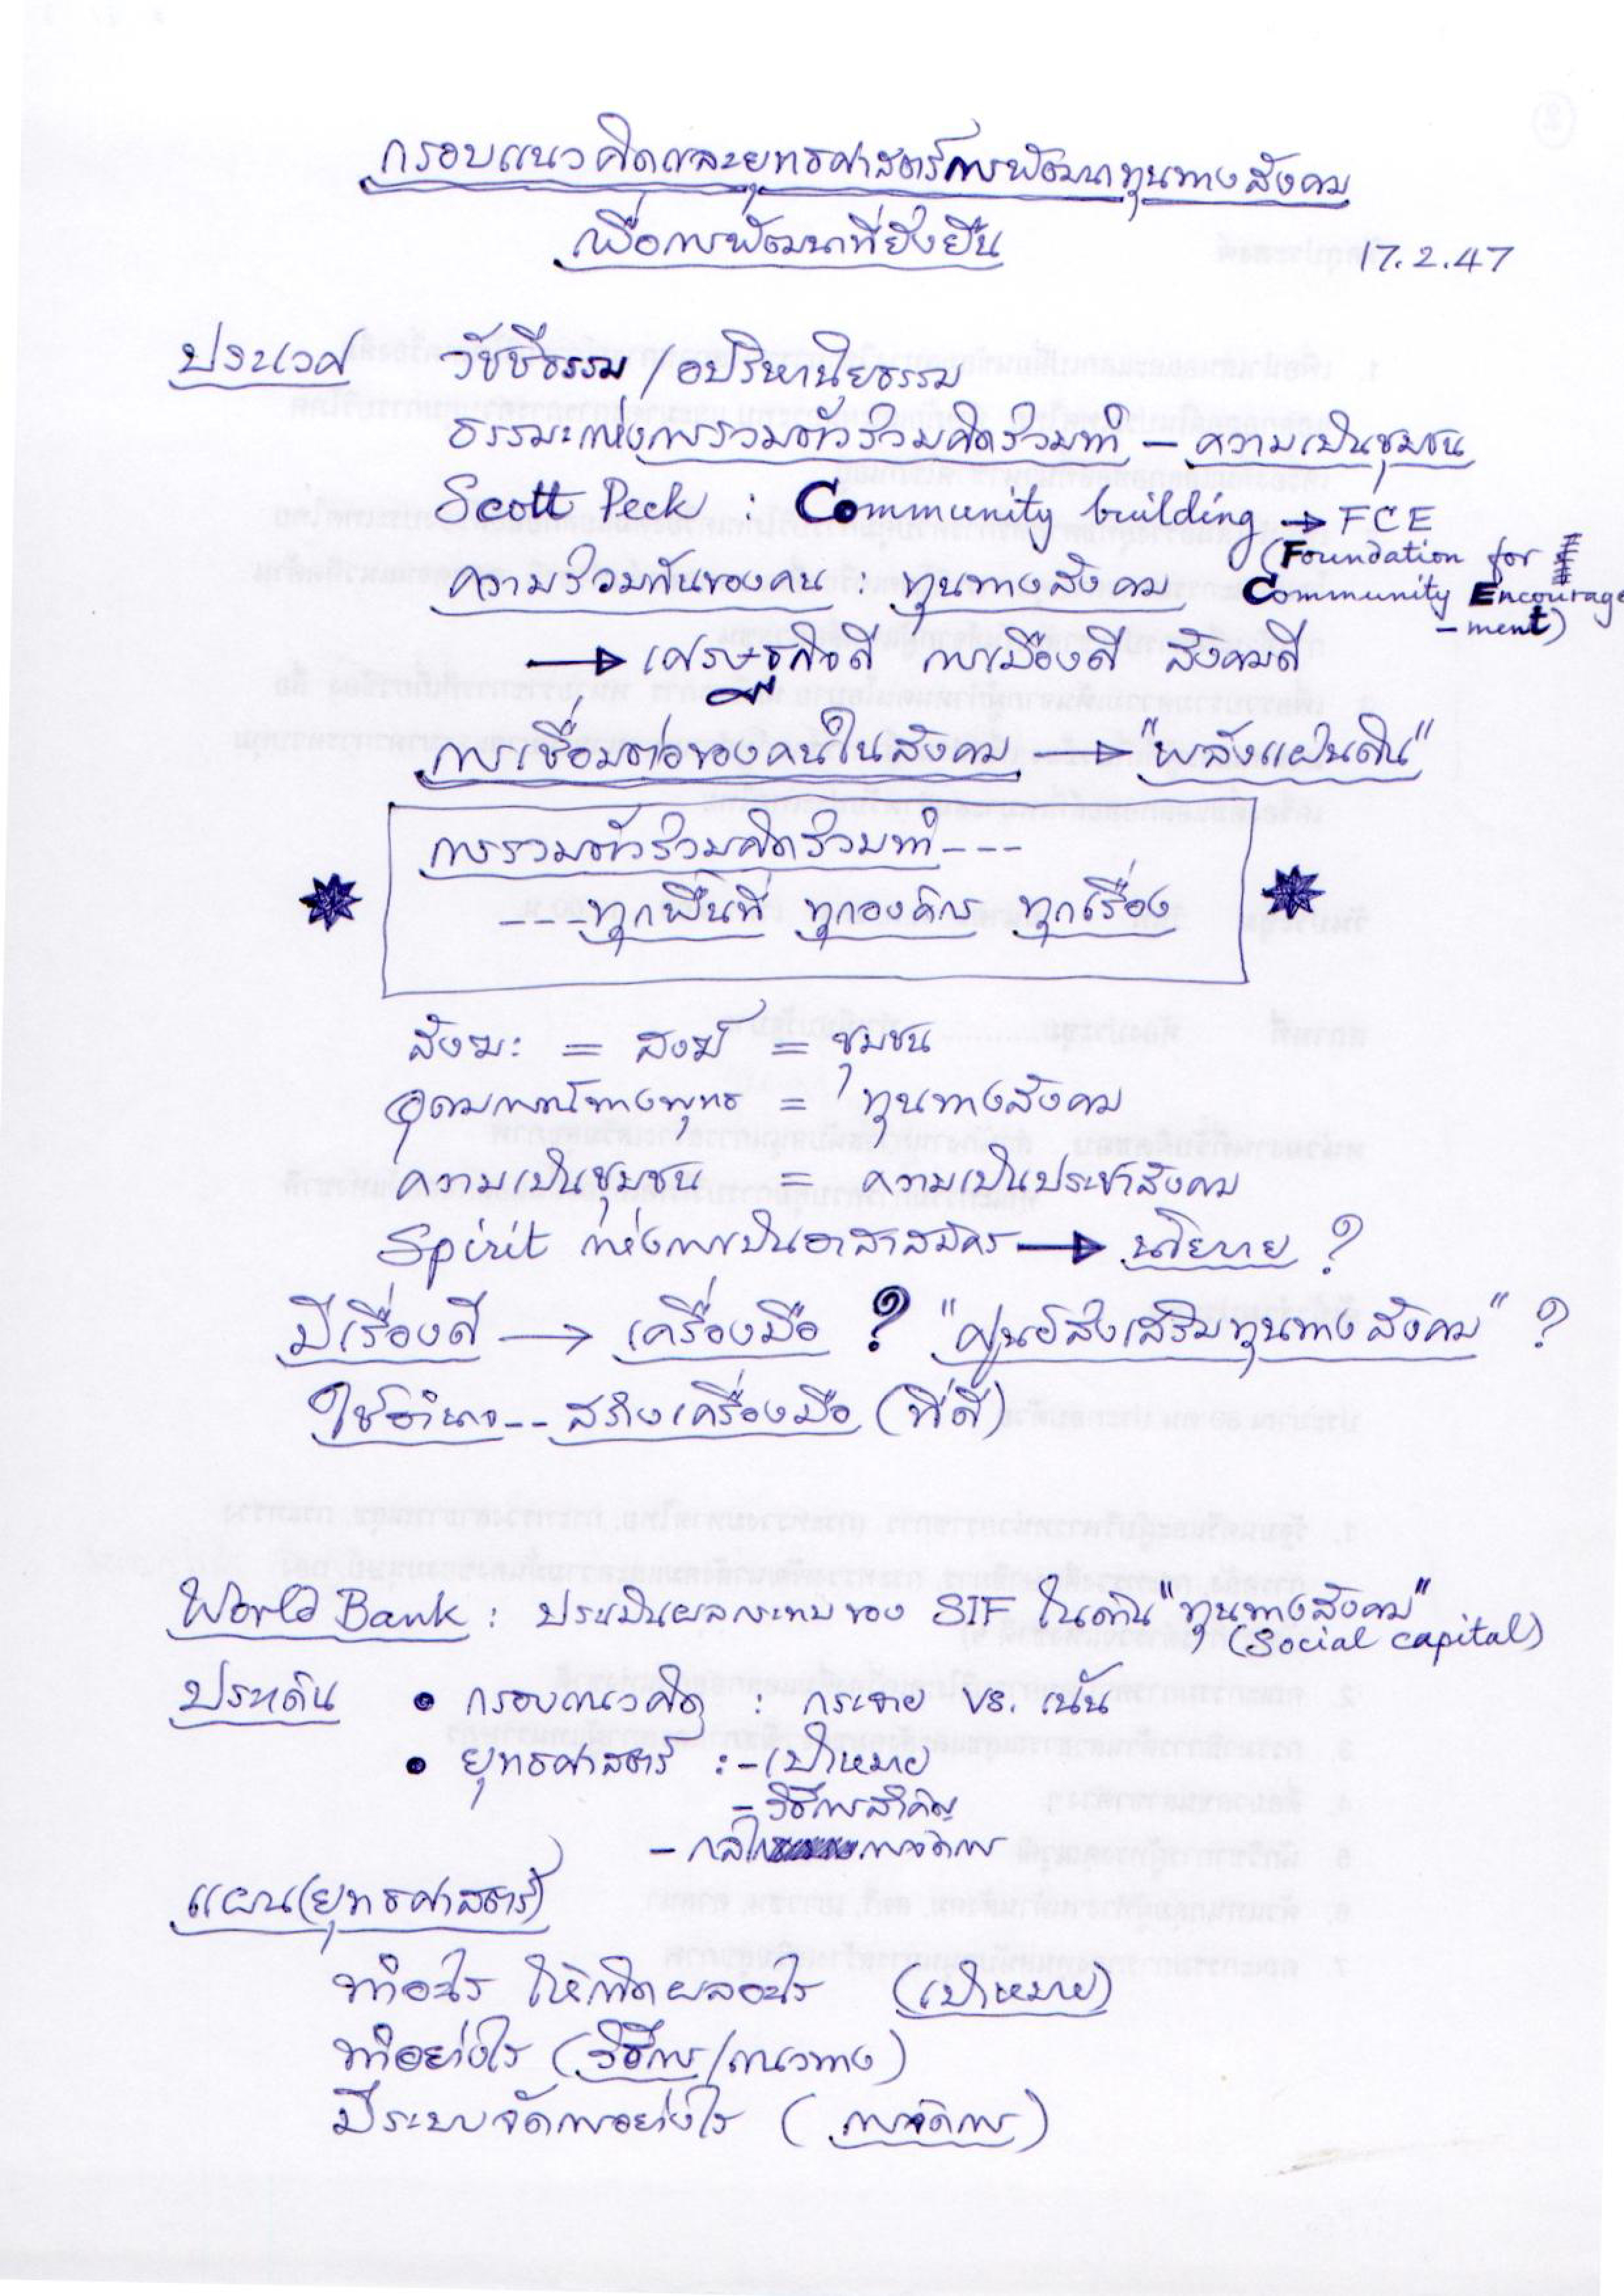 กรอบแนวคิดและยุทธศาสตร์การพัฒนาทุนทางสังคม
เพื่อการพัฒนาที่ยั่งยืน
17.2.47
ประเวศ วัชชีธรรม / อปริหานิยธรรม
ธรรมะแห่งการรวมตัวร่วมคิดร่วมทำ – ความเป็นชุมชน
Scott Peck : Community building → FCE
(Foundation for
ความร่วมกันของคน : ทุนทางสังคม Community Encourage
-ment)
→ เศรษฐกิจดี การเมืองดี สังคมดี
การเชื่อมต่อของคนในสังคม → "พลังแผ่นดิน"
การรวมตัวร่วมคิดร่วมทำ ---
--- ทุกพื้นที่ ทุกองค์กร ทุกเรื่อง
สังฆะ = สงฆ์ = ชุมชน
อุดมการณ์ทางพุทธ = ทุนทางสังคม
ความเป็นชุมชน = ความเป็นประชาสังคม
Spirit แห่งการเป็นอาสาสมัคร → นโยบาย ?
มีเรื่องดี → เครื่องมือ ? "ศูนย์ส่งเสริมทุนทางสังคม" ?
ใช้อำนาจ -- สร้างเครื่องมือ (ที่ดี)
World Bank : ประเมินผลกระทบของ SIF ในด้าน "ทุนทางสังคม"
(Social capital)
ประเด็น • กรอบแนวคิด : กระจาย vs. เน้น
• ยุทธศาสตร์ : - เป้าหมาย
- วิธีการสำคัญ
- กลไกการจัดการ
แผน(ยุทธศาสตร์)
ทำอะไร ให้เกิดผลอะไร (เป้าหมาย)
ทำอย่างไร (วิธีการ/แนวทาง)
มีระบบจัดการอย่างไร (การจัดการ)